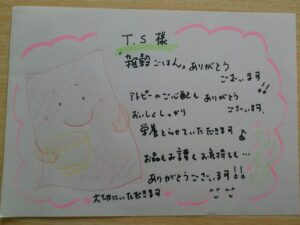 T.S 様
「雑穀ごはん」ありがとう
ございます!!
アトピーのご心配もありがとう
ございます。
おいしくしっかり
栄養とらせていただきます♪
お品もお譲もお気持も…
ありがとうございます!!
大切にいただきます